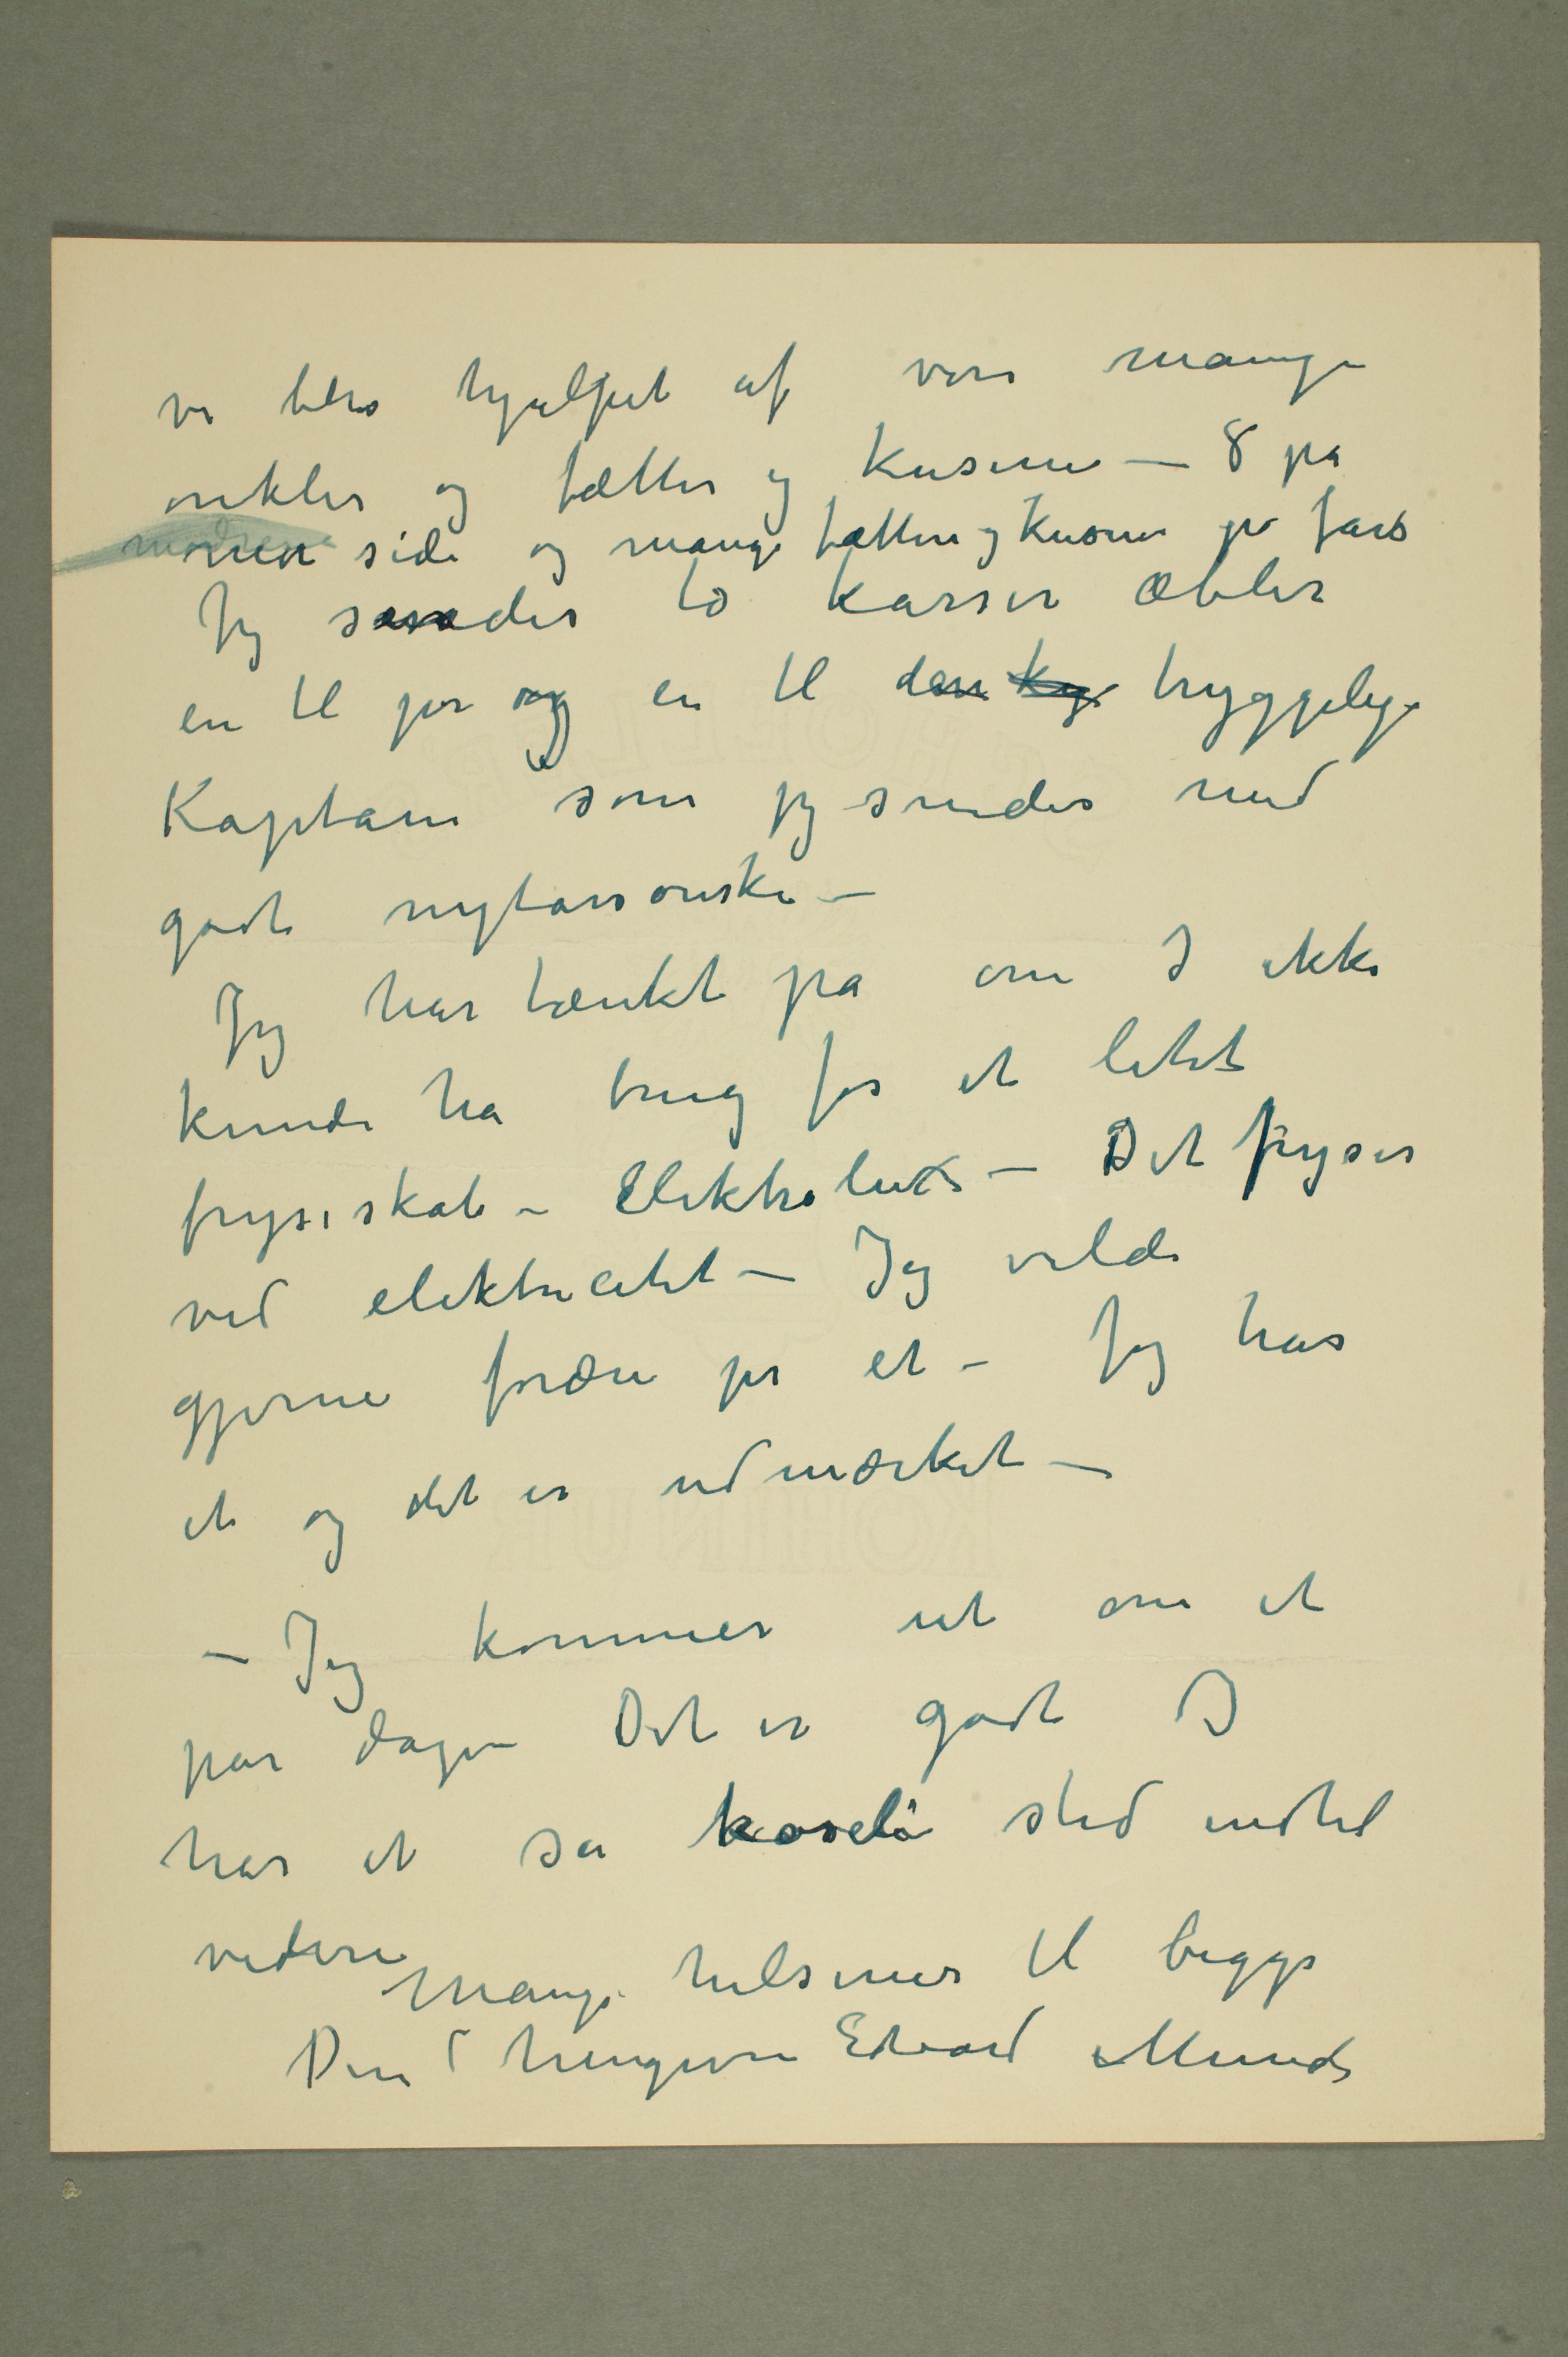 vi blev hjulpet af vore mange
onkler og fætter og kusiner – 8 på
mødrene side og mange fættere og kusiner på fars
Jeg sender to kasser æbler
en til jer og en til den hyggelige
Kaptain som jeg sender med
gode nytårsønske –
Jeg har tænkt på om I ikke
kunde ha brug for et litet
fryseskab – Elektrolux – Det fryser
ved elektricitet – Jeg vilde
gjerne forære jer et – Jeg har
et og det er udmærket –
– Jeg kommer ut om et
par dage Det er godt I
har et så koseli sted indtil
videre
Mange hilsener til begge
Din hengivne Edvard Munch